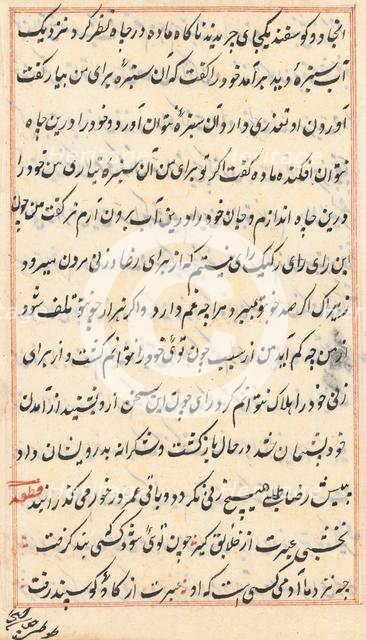 انجا دو گوسفند یکجای چریدند ناگاه ماده در چاه نظر کرد نزدیک
آب سبزهٔ دید برآمد خود را گفت که آن سبزه برای من بیار گفت
آوردن او تعذری دارد آن سبزه نتوان آورد و خود را درین چاه
نتوان افکند ماده گفت اگر تو برای من آن سبزه نیاری من خود را
درین چاه اندازم و جان خود را درین آب برون آرم نر گفت من چون
این رای رای رکیک رای نیستم که از برای رضا زنی مردن میرود
زیراک اگر صد چو تو بمیرد مرا چه غم دارد و اگر هزار چو تو تلف شود
از من چه کم آید من از سبب چون توئی خود را نتوانم کشت و از برای
زنی خود را هلاک نتوانم کرد رای چون این سخن ازو بشنید از آمدن
خود پشیمان شد در حال بازگشت و شکرانه بدرویشان داد
پیش رضا طلبی هیچ زنی نکرد و باقی عمر در خورمی گذرانید قطعه
نخشبی عبرت از خلایق گیر چون توی شوخ کسی بند گرفت
چه نزد ما آدمی کسی است که او عبرت از گاو گوسپند رفت